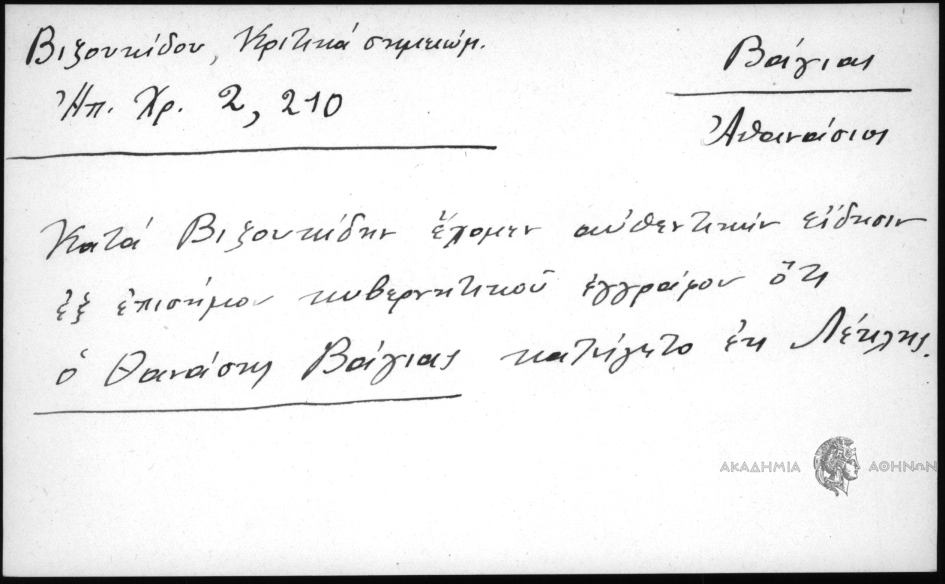 Βιζουκίδου, Κριτικά σημειώμ.
Ἠπ. Χρ. 2, 210
Βάγιας
Ἀθανάσιος
Κατά Βιζουκίδην ἔχομεν αὐθεντικήν εἴδησιν
ἐξ ἐπισήμου κυβερνητικοῦ ἐγγράφου ὅτι
ὁ Θανάσης Βάγιας κατήγετο ἐκ Λέκλης.
ΑΚΑΔΗΜΙΑ ΑΘΗΝΩΝ